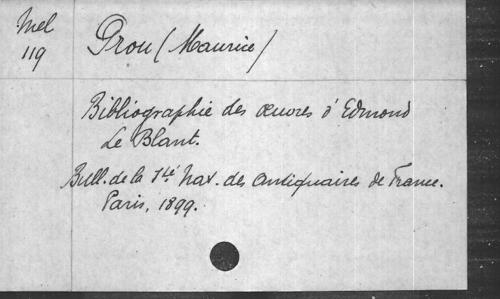 Mel
119
Prou (Maurice)
Bibliographie des œuvres d'Edmond
Le Blant.
Bull. de la Sté Nat. des Antiquaires de France.
Paris, 1899.